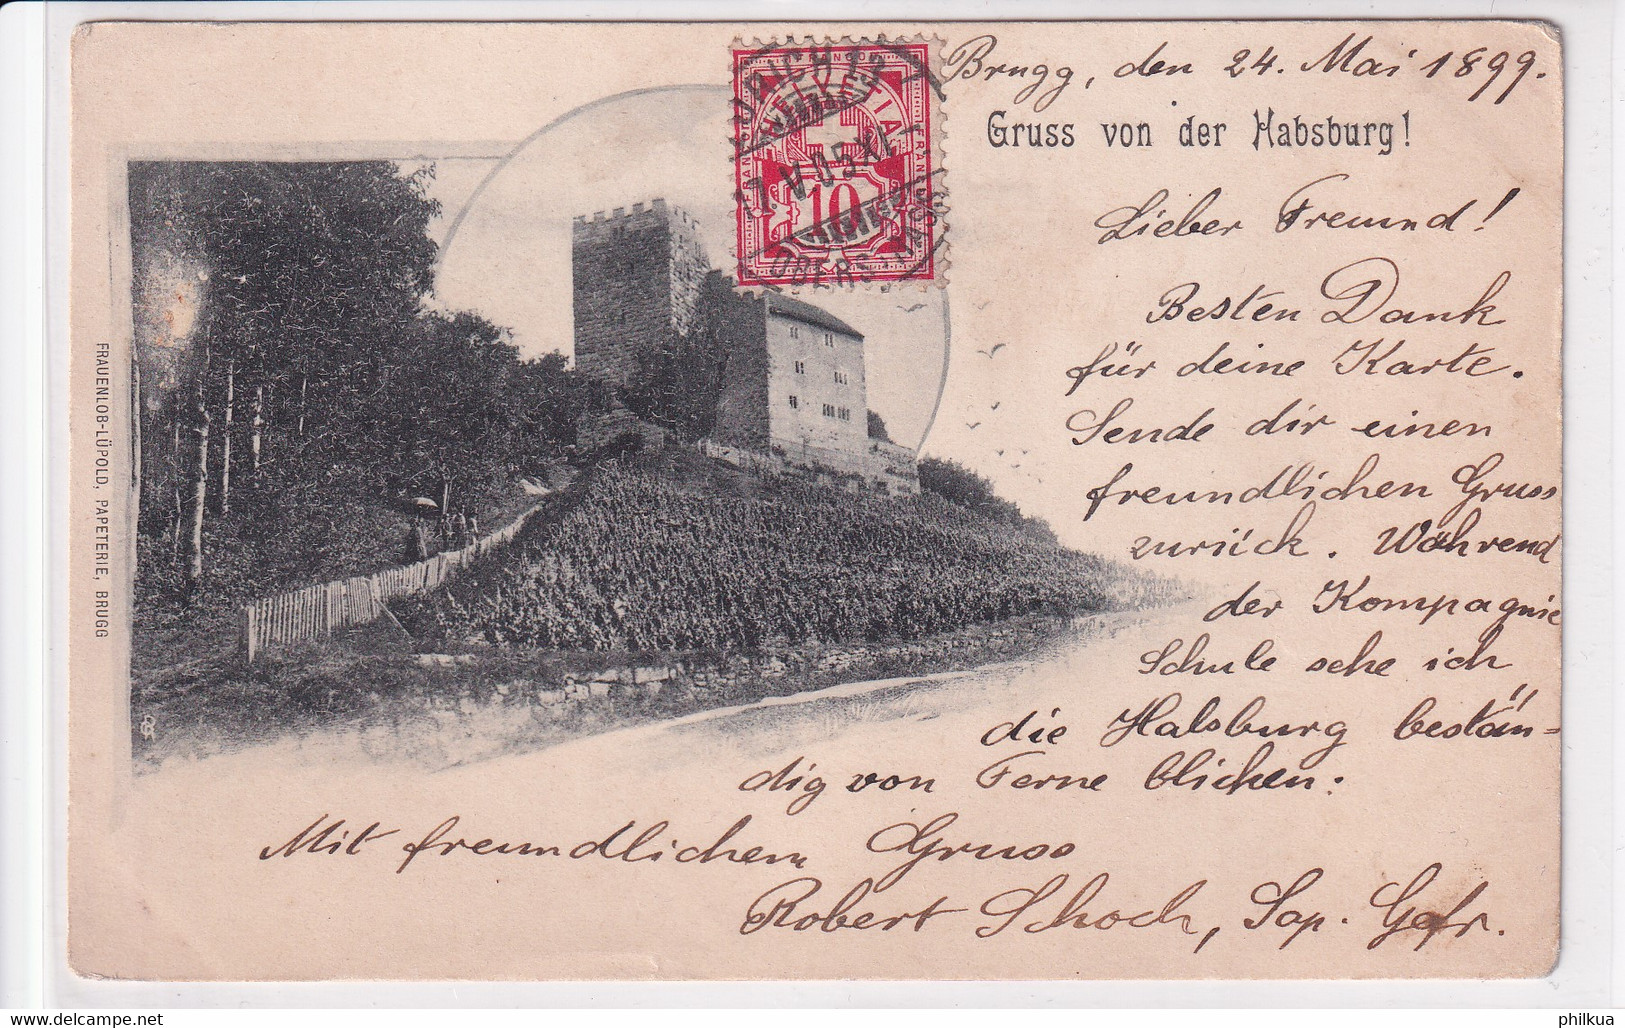 Brugg, den 24. Mai 1899.
Gruss von der Habsburg!
Lieber Freund!
Besten Dank
für deine Karte.
Sende dir einen
freundlichen Gruss
zurück. Während
der Kompagnie
Schule sehe ich
die Habsburg bestän-
dig von Ferne blicken.
Mit freundlichem Gruss
Robert Schoch, Sap. Gefr.
FRAUENLOB-LÜPOLD, PAPETERIE, BRUGG
HELVETIA
FRANCO
10
ZÜRICH 13
17. V. 05. XI
OBERSTRASS
www.delcampe.net
philkua